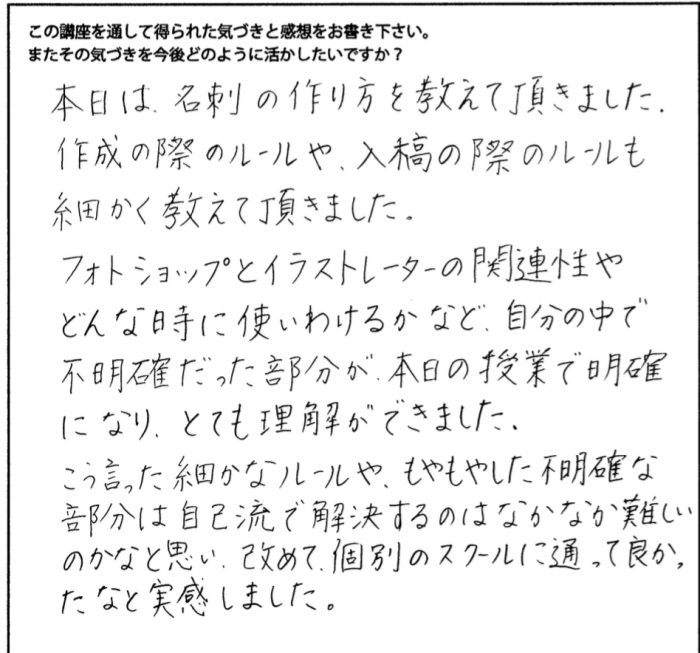 この講座を通して得られた気づきと感想をお書き下さい。
またその気づきを今後どのように活かしたいですか？
本日は、名刺の作り方を教えて頂きました。
作成の際のルールや、入稿の際のルールも
細かく教えて頂きました。
フォトショップとイラストレーターの関連性や
どんな時に使いわけるかなど、自分の中で
不明確だった部分が、本日の授業で明確
になり、とても理解ができました。
こう言った細かなルールや、もやもやした不明確な
部分は自己流で解決するのはなかなか難しい
のかなと思い、改めて、個別のスクールに通って良かっ
たなと実感しました。